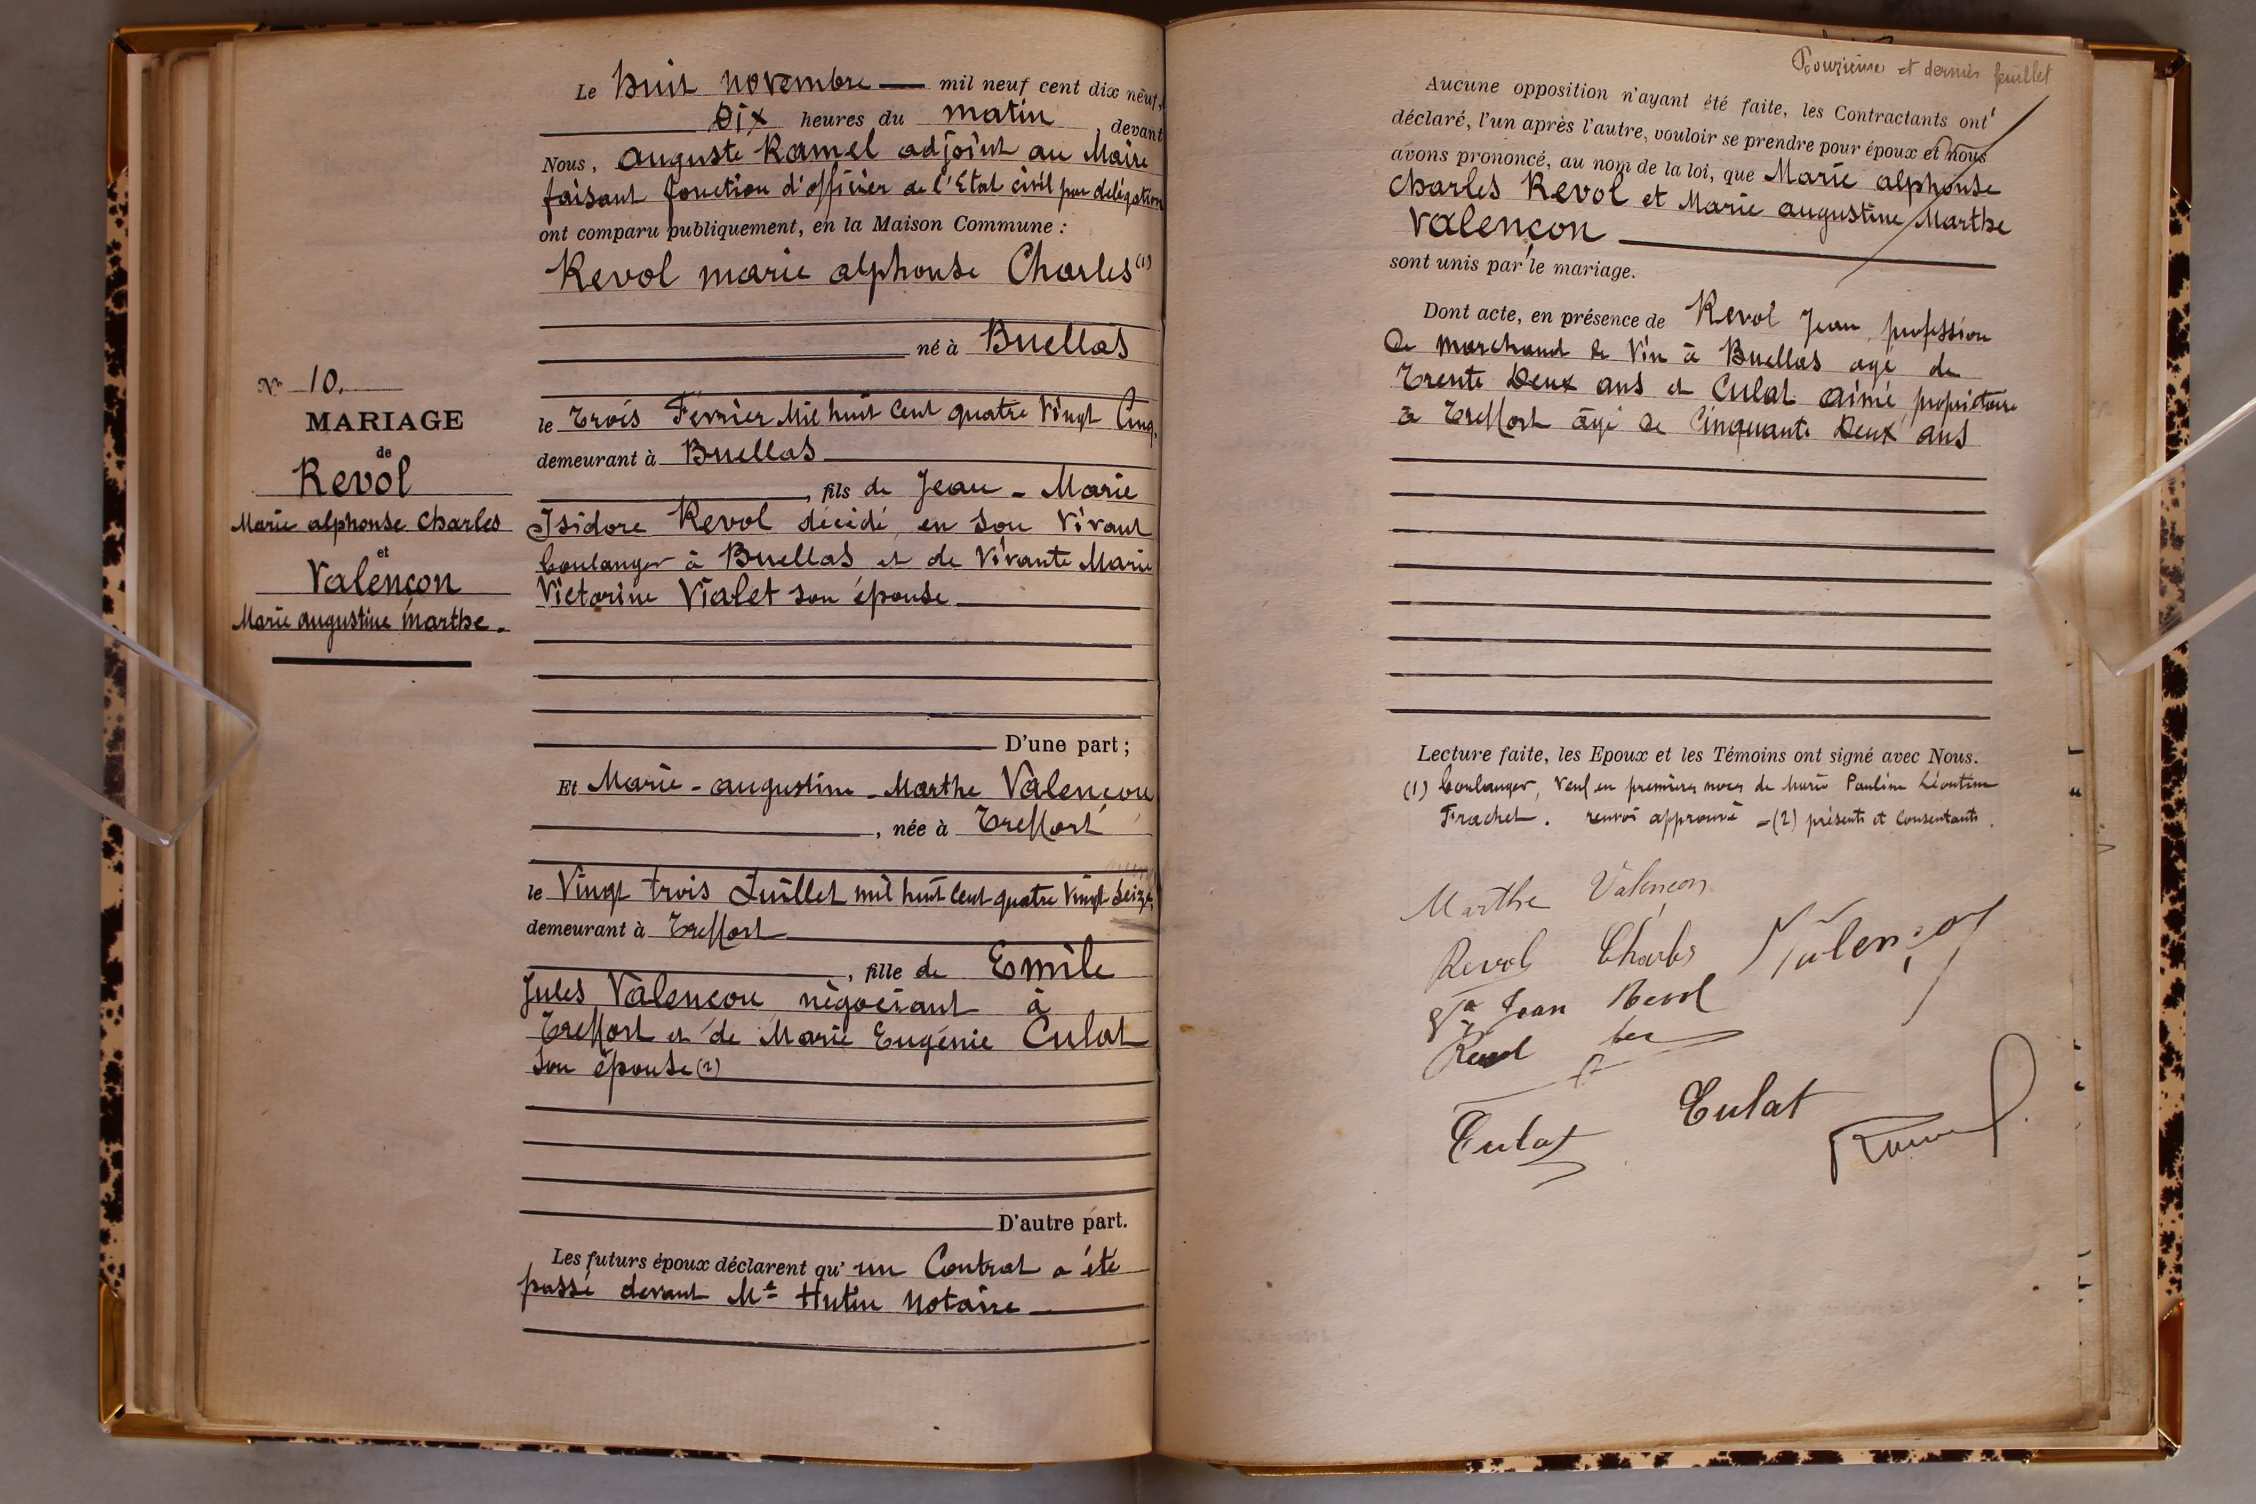 Le huit novembre — mil neuf cent dix neuf,
Dix heures du matin, devant
Nous, auguste Ramel adjoint au Maire
faisant fonction d'officier de l'Etat civil par délégation
ont comparu publiquement, en la Maison Commune :
Revol marie alphonse Charles (1)
né à Buellas
le Trois Février Mil huit Cent quatre Vingt Cinq,
demeurant à Buellas
, fils de Jean - Marie
Isidore Revol décédé, en son Vivant
boulanger à Buellas et de Vivante Marie
Victorine Vialet son épouse
D'une part ;
Et Marie - augustine - Marthe Valençon
, née à Treffort
le Vingt trois Juillet mil huit Cent quatre Vingt Seize,
demeurant à Treffort
, fille de Emile
Jules Valençon négociant à
Treffort et de Marie Eugénie Culat
son épouse (2)
D'autre part.
Les futurs époux déclarent qu'un Contrat a été
passé devant Me Hutin Notaire
No 10.
MARIAGE
de
Revol
Marie alphonse Charles
et
Valençon
Marie augustine Marthe.
et dernier feuillet
Aucune opposition n'ayant été faite, les Contractants ont
déclaré, l'un après l'autre, vouloir se prendre pour époux et nous
avons prononcé, au nom de la loi, que Marie alphonse
Charles Revol et Marie augustine Marthe
Valençon
sont unis par le mariage.
Dont acte, en présence de Revol Jean, profession
de marchand de Vin à Buellas agé de
Trente Deux ans et Culat aimé, propriétaire
à Treffort âgé de Cinquante Deux ans
Lecture faite, les Epoux et les Témoins ont signé avec Nous.
(1) boulanger, Veuf en premières noces de Marie Pauline Léontine
Frachet. renvoi approuvé - (2) présents et Consentants.
Marthe Valençon
Revol Charles Valençon
Jean Revol
Revol
Culat
Culat
Ramel